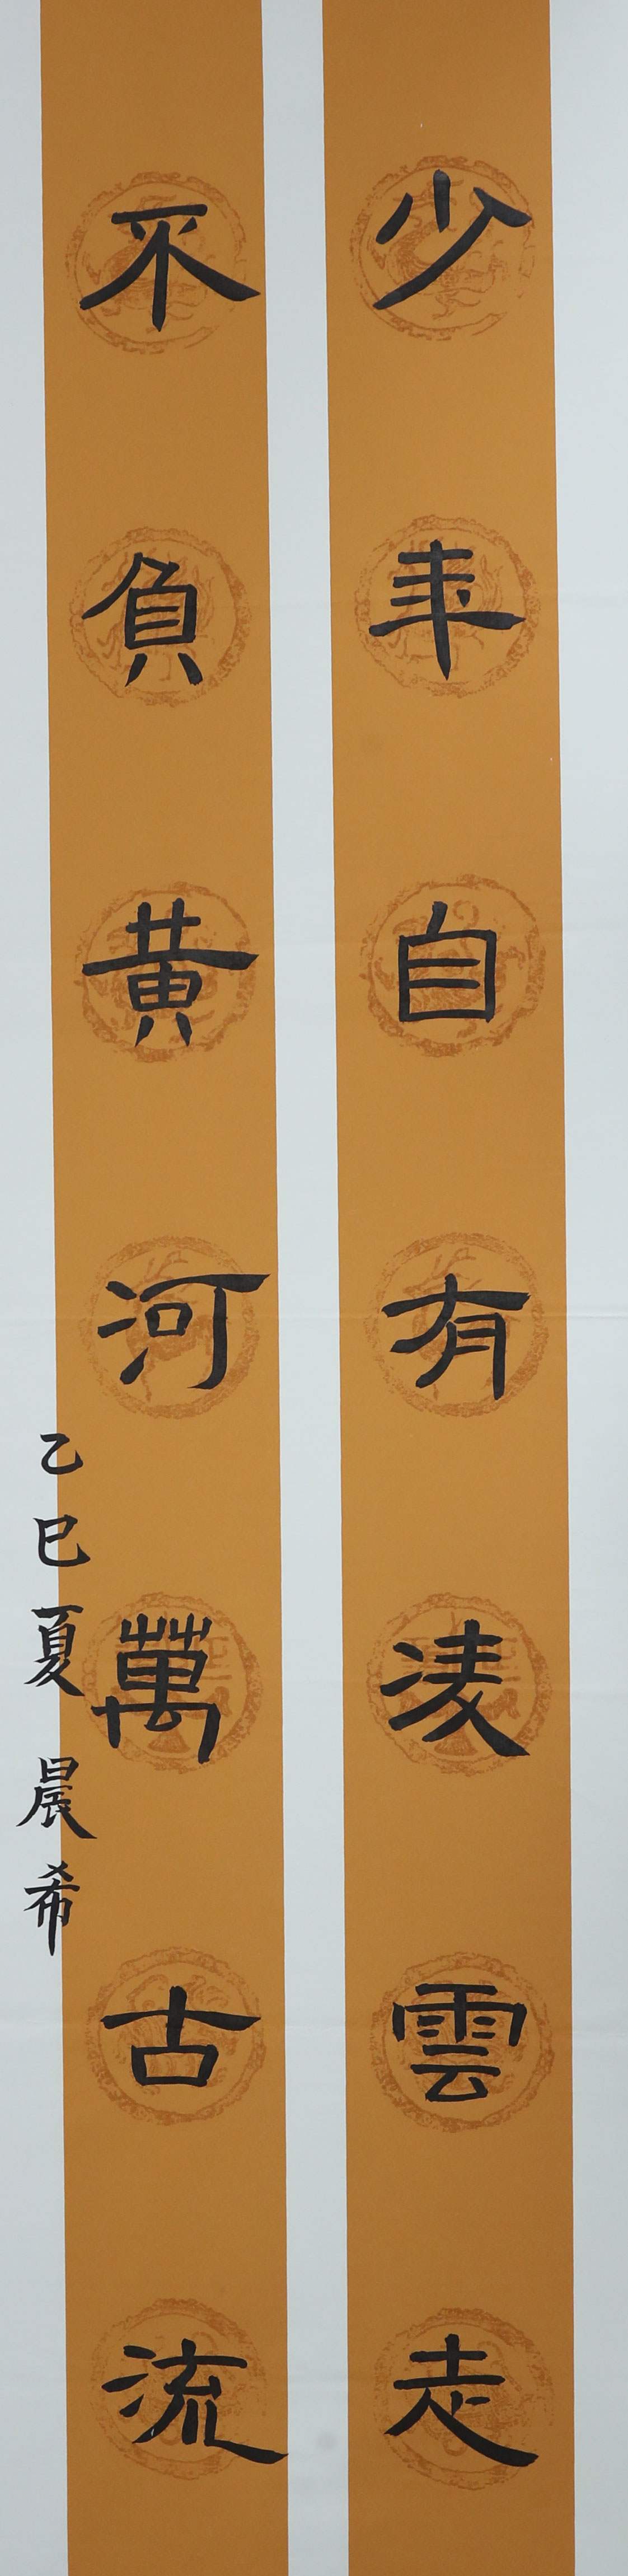 少年自有凌雲走
不負黄河萬古流
乙巳夏 晨希